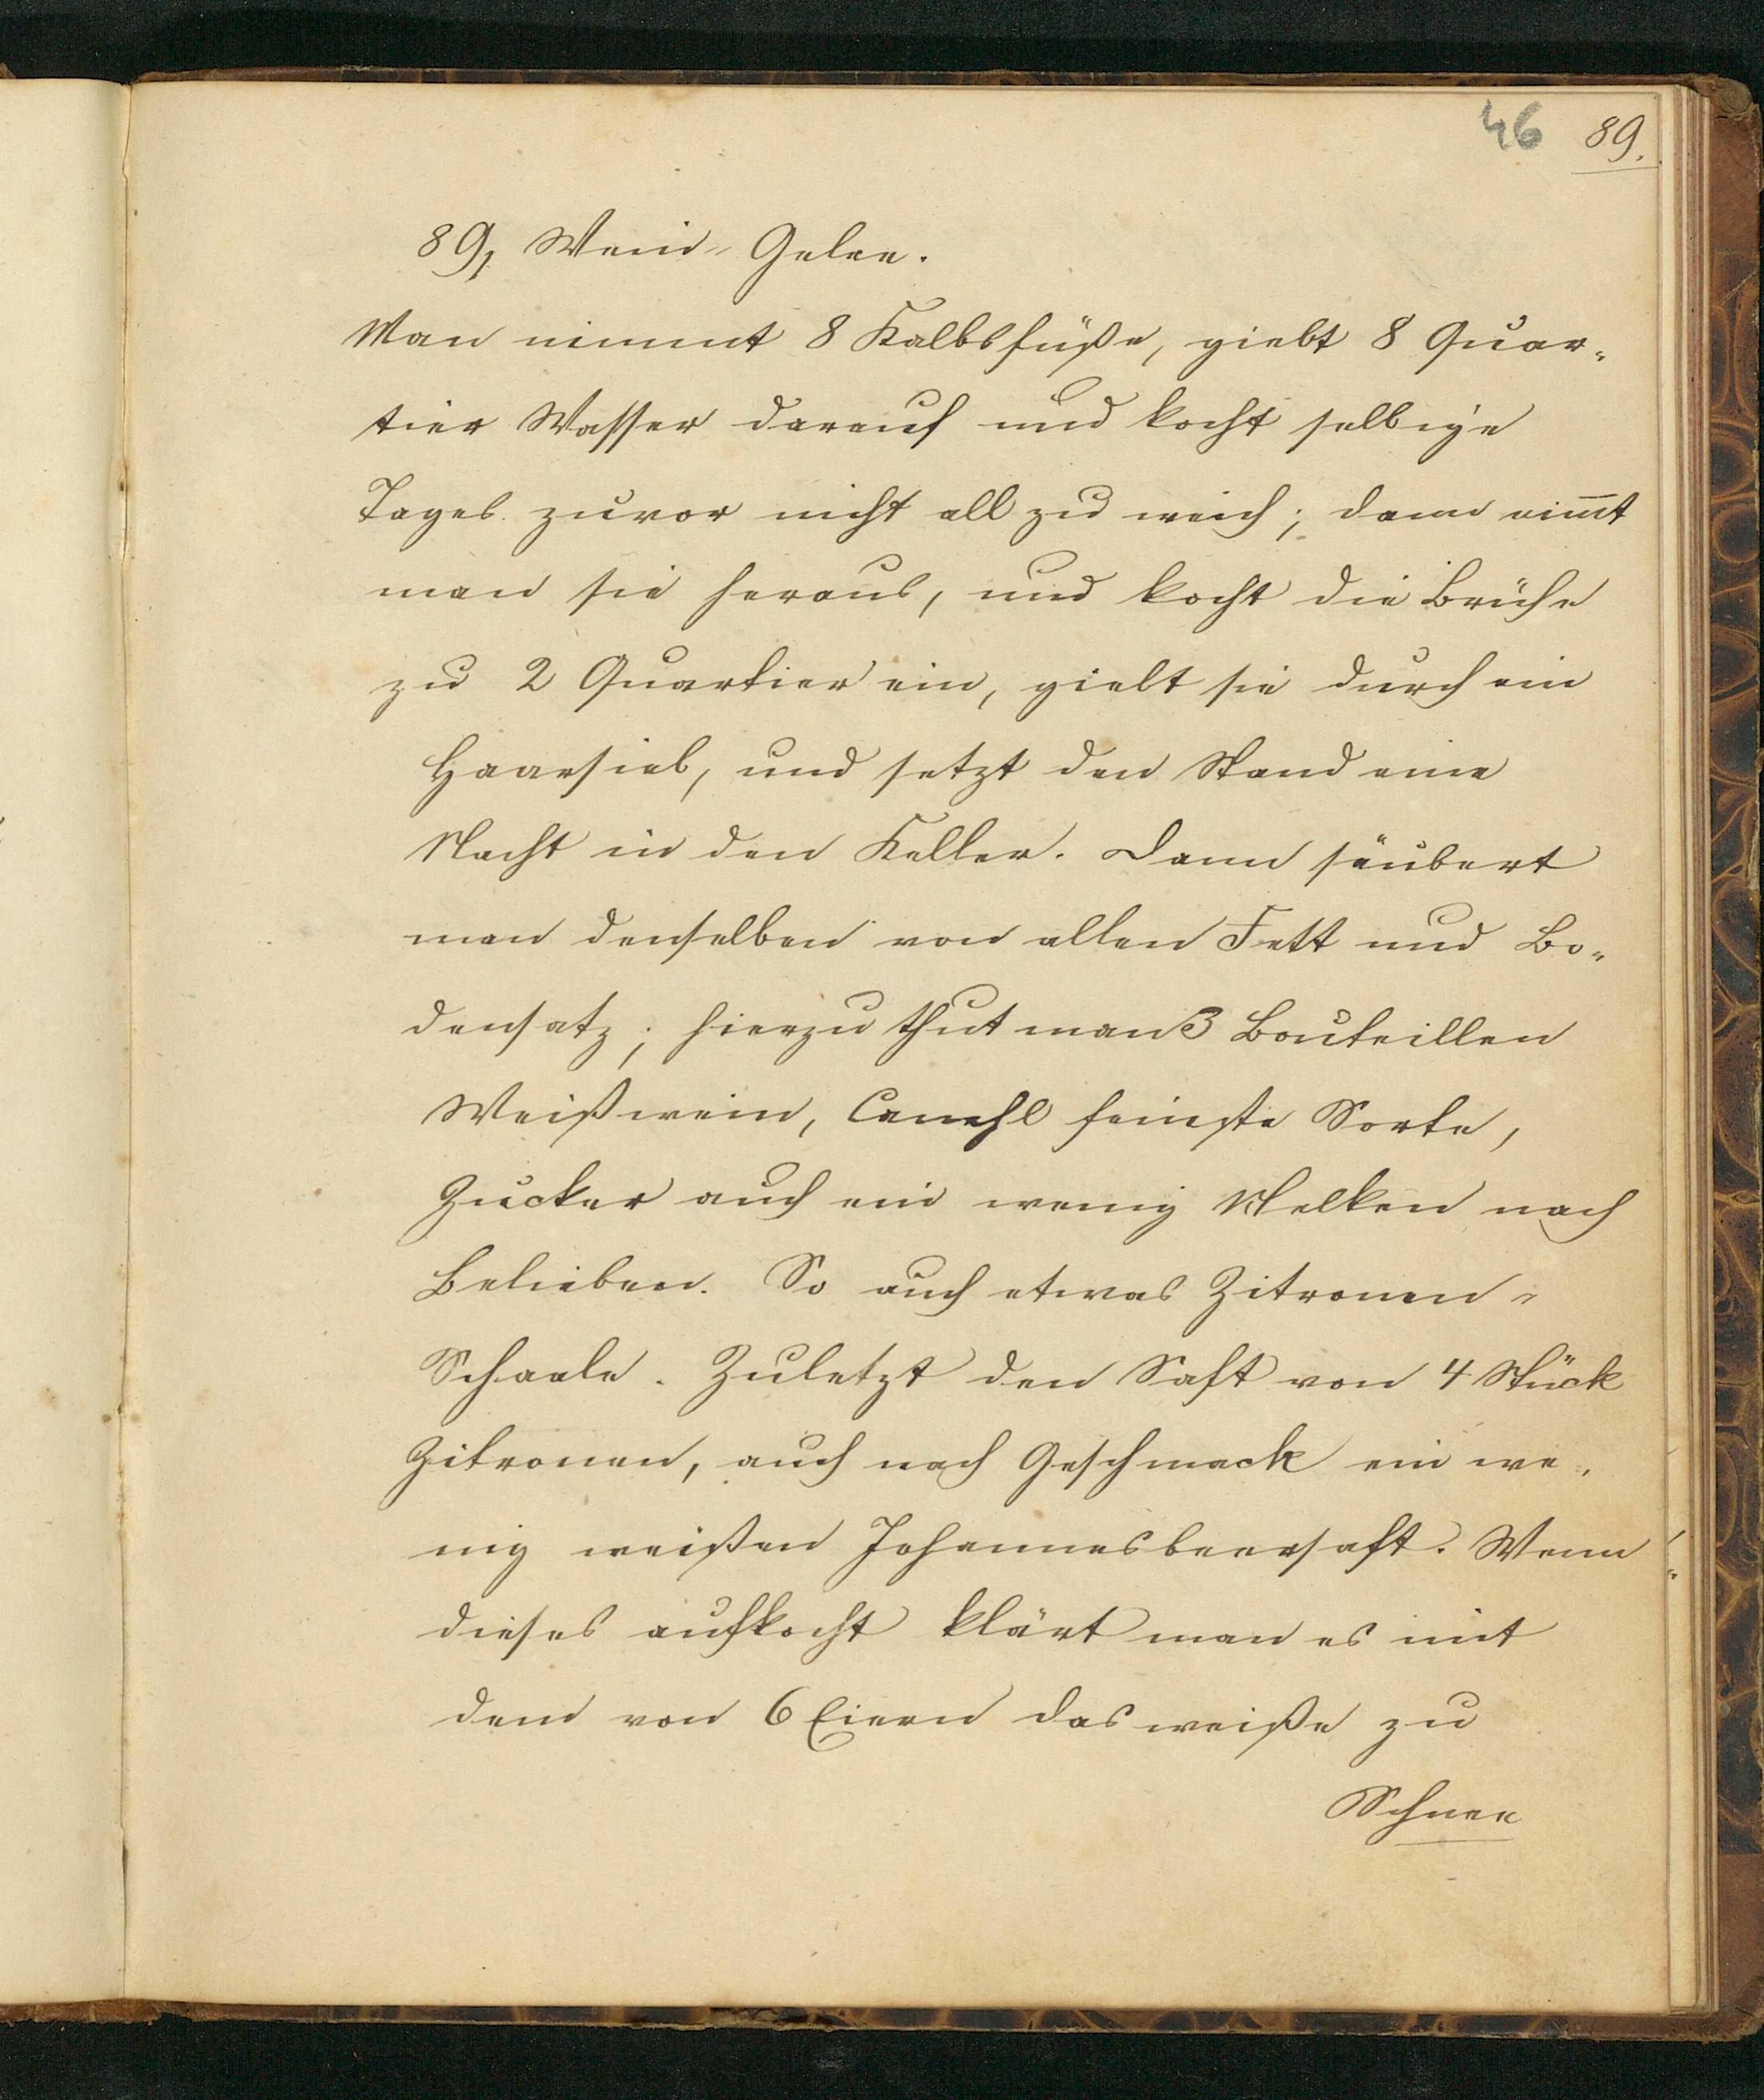 46 89.
89, Wein-Gelee.
Man nimmt 8 Kalbsfüße, giebt 8 Quar-
tier Wasser darauf und kocht selbige
Tages zuvor nicht all zu weich; dann nim̅t
man sie heraus, und kocht die Brühe
zu 2 Quartier ein, giebt sie durch ein
Haarsieb, und setzt den Stand eine
Nacht in den Keller. Dann säubert
man denselben von allen Fett und Bo-
densatz; hierzu thut man 3 Bouteillen
Weißwein, Canehl feinste Sorte,
Zucker auch ein wenig Nelken nach
Belieben. So auch etwas Zitronen-
Schaale. Zuletzt den Saft von 4 Stück
Zitronen, auch nach Geschmack ein we-
nig weißen Johannesbeersaft. Wenn
dieses aufkocht klärt man es mit
dem von 6 Eiern das weiße zu
Schnee